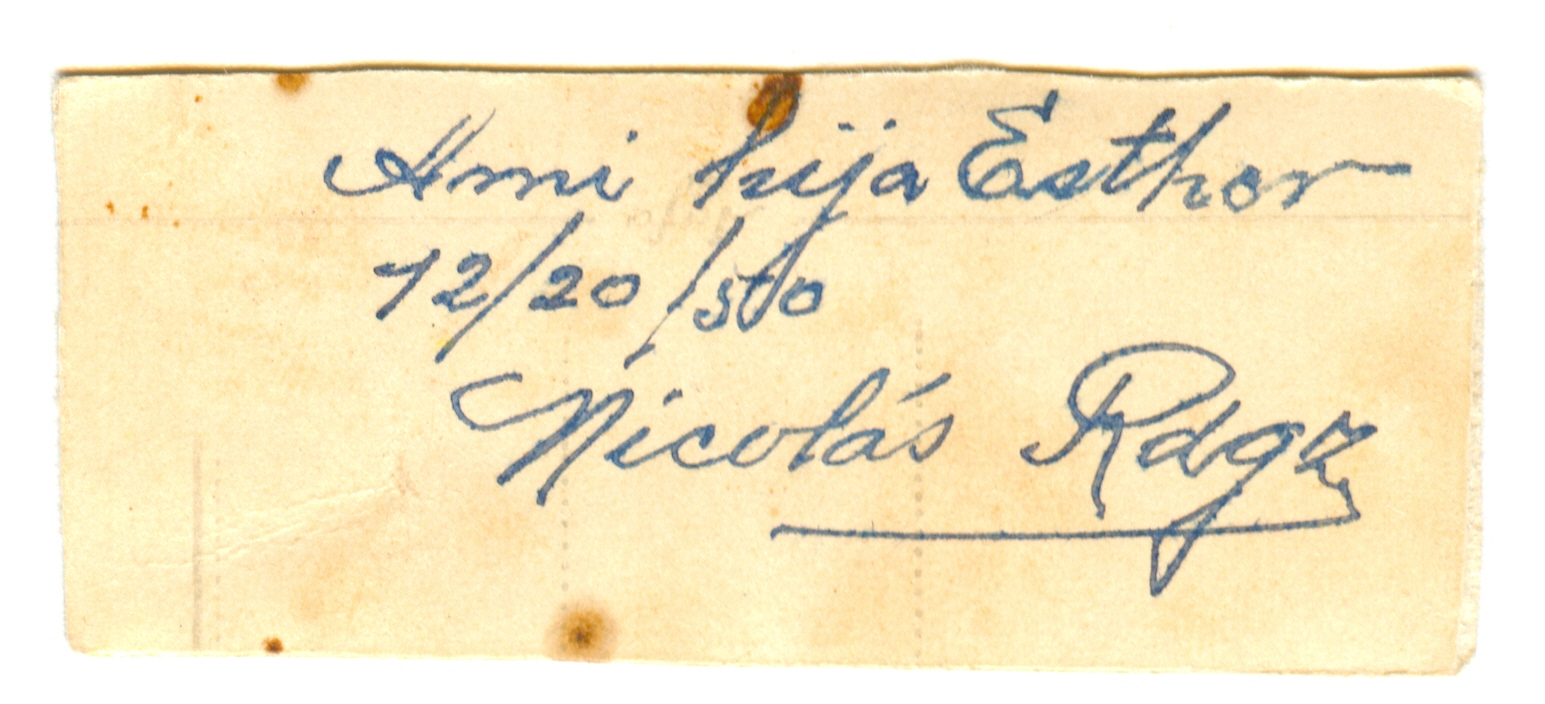 A mi hija Esther
12/20/50
Nicolás Rdgz